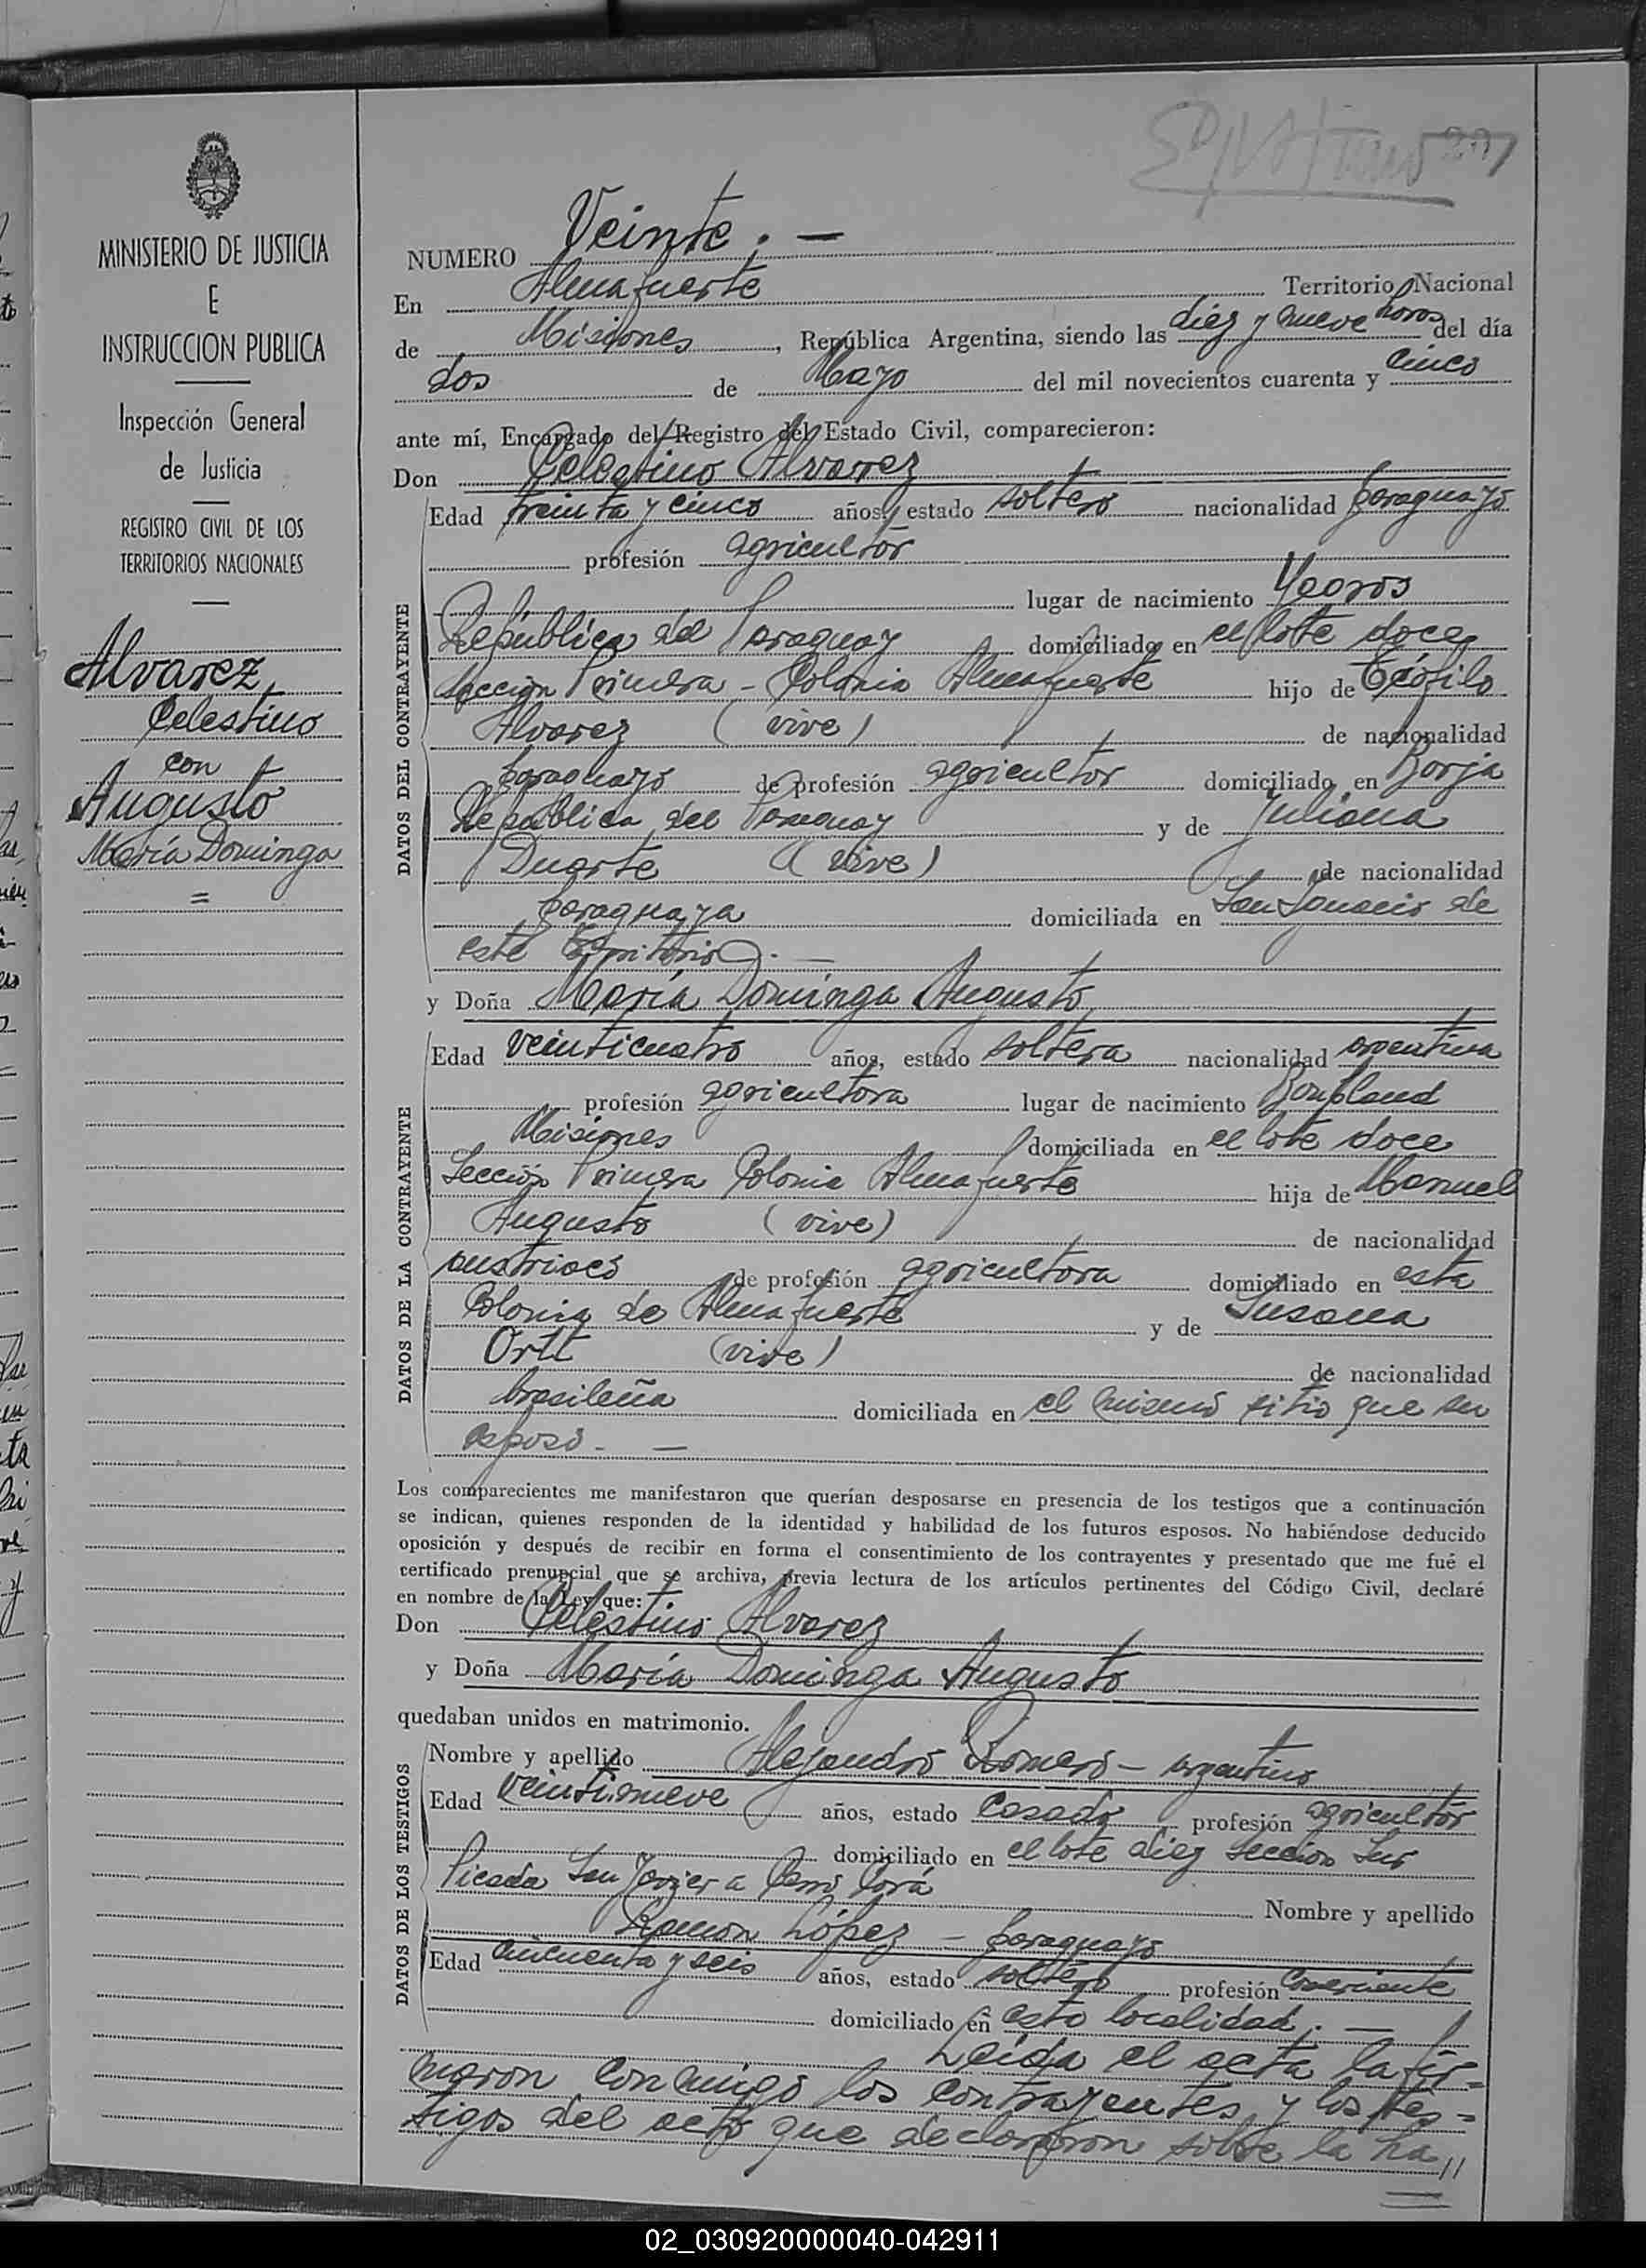 MINISTERIO DE JUSTICIA
E
INSTRUCCION PUBLICA
Inspección General
de Justicia
REGISTRO CIVIL DE LOS
TERRITORIOS NACIONALES
Alvarez
Celestino
con
Augusto
María Dominga
=
NUMERO Veinte. —
En Almafuerte Territorio Nacional
de Misiones, República Argentina, siendo las diez y nueve horas del día
dos de Mayo del mil novecientos cuarenta y cinco
ante mí, Encargado del Registro del Estado Civil, comparecieron:
Don Celestino Alvarez
DATOS DEL CONTRAYENTE
Edad treinta y cinco años, estado soltero nacionalidad paraguayo
profesión agricultor
lugar de nacimiento Yegros
República del Paraguay domiciliado en el lote doce,
sección Primera - Colonia Almafuerte hijo de Teófilo
Alvarez (vive) de nacionalidad
paraguayo de profesión agricultor domiciliado en Borja
República del Paraguay y de Juliana
Duarte (vive) de nacionalidad
paraguaya domiciliada en San Ignacio de
este Territorio. —
y Doña María Dominga Augusto
DATOS DE LA CONTRAYENTE
Edad veinticuatro años, estado soltera nacionalidad argentina
profesión agricultora lugar de nacimiento Bonpland
Misiones domiciliada en el lote doce
Sección Primera Colonia Almafuerte hija de Manuel
Augusto (vive) de nacionalidad
austriaco de profesión agricultora domiciliado en esta
Colonia de Almafuerte y de Susana
Ortt (vive) de nacionalidad
brasileña domiciliada en el mismo sitio que su
esposo. —
Los comparecientes me manifestaron que querían desposarse en presencia de los testigos que a continuación
se indican, quienes responden de la identidad y habilidad de los futuros esposos. No habiéndose deducido
oposición y después de recibir en forma el consentimiento de los contrayentes y presentado que me fué el
certificado prenupcial que se archiva, previa lectura de los artículos pertinentes del Código Civil, declaré
en nombre de la Ley que:
Don Celestino Alvarez
y Doña María Dominga Augusto
quedaban unidos en matrimonio.
DATOS DE LOS TESTIGOS
Nombre y apellido Alejandro Romero - argentino
Edad veintinueve años, estado Casado profesión agricultor
domiciliado en el lote diez sección Sur
Picada San Javier a Cerro Corá Nombre y apellido
Ramon López - paraguayo
Edad cincuenta y seis años, estado soltero profesión Comerciante
domiciliado en esta localidad. —
Leída el acta la fir=
maron conmigo los contrayentes y los tes=
tigos del acto que declararon sobre la ha//
02_030920000040-042911